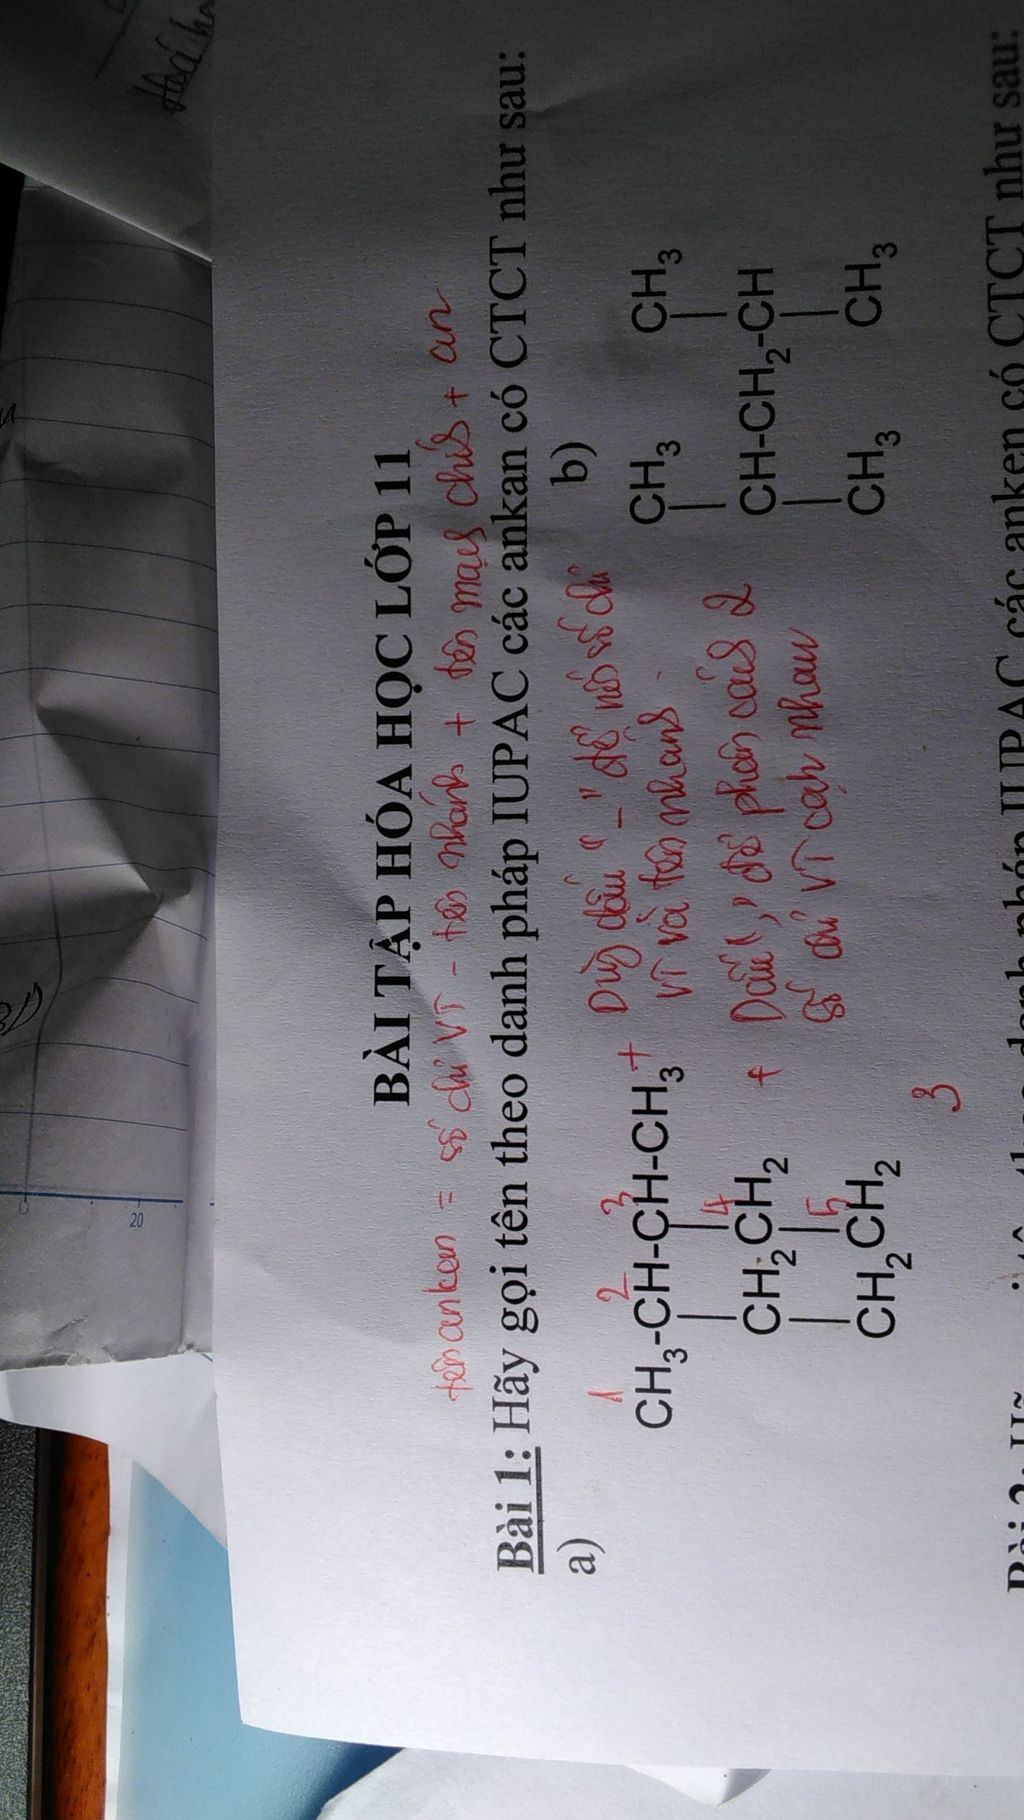 BÀI TẬP HÓA HỌC LỚP 11
tên ankan = số chỉ VT - tên nhánh + tên mạch chính + an
Bài 1: Hãy gọi tên theo danh pháp IUPAC các ankan có CTCT như sau:
a)
1 2 3
CH3-CH-CH-CH3
4
CH2 CH2
5
CH2 CH2
3
+ Dùng dấu "-" để nối số chỉ
VT và tên nhánh.
+ Dấu "," để phân cách 2
số chỉ VT cạnh nhau
b)
CH3 CH3
CH-CH2-CH
CH3 CH3
IUPAC các anken có CTCT như sau:
20